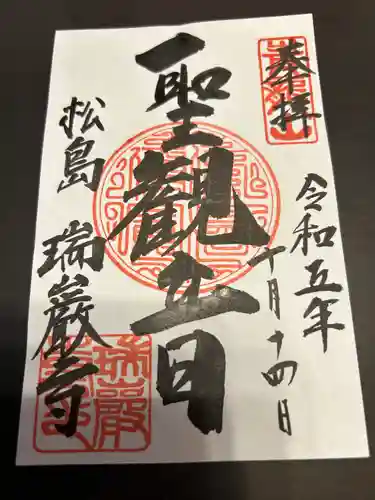 奉拝
令和五年
十月十四日
聖観音
松島
瑞巌寺
瑞巌